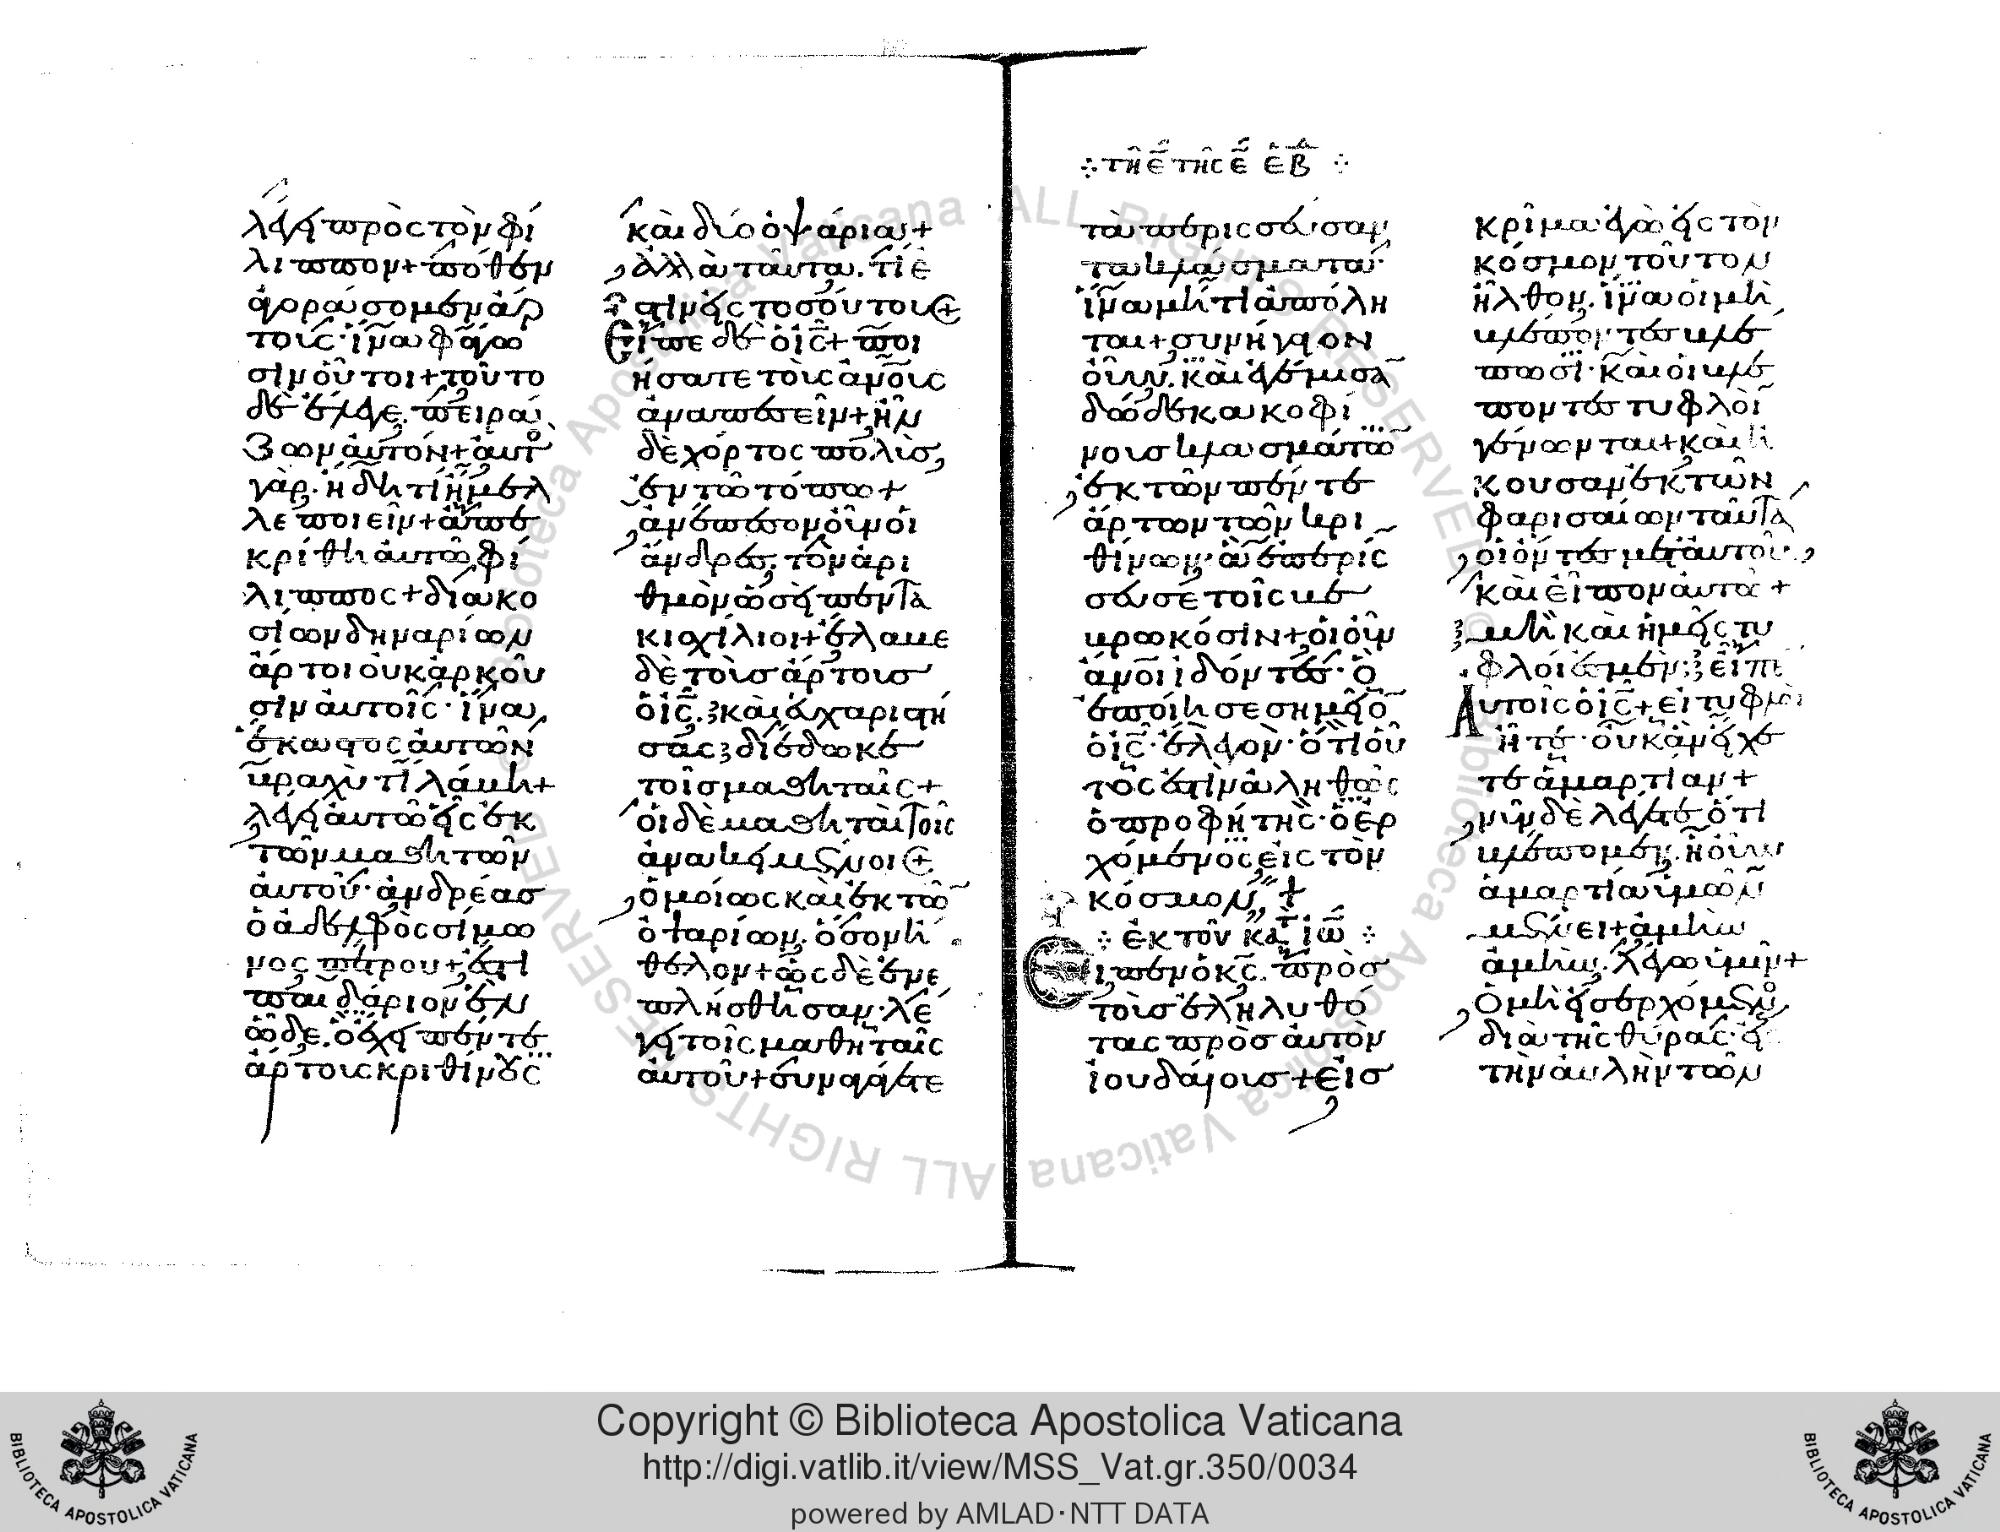 λέγει πρὸς τὸν φί
λιππον+ πόθεν
ἀγοράσομεν ἄρ
τους· ἵνα φάγω
σιν οὗτοι+ τοῦτο
δὲ ἔλεγε, πειρά
ζων αὐτόν+ αὐτὸ
γὰρ. ἤδη τί ἤμελ
λε ποιεῖν+ ἀπε
κρίθη αὐτῶ φί
λιππος+ διακο
σίων δηναρίων
ἄρτοι οὐκ ἀρκοῦ
σιν αὐτοῖς· ἵνα
ἕκαστος αὐτῶν
βραχύ τι λάβη+
λέγει αὐτῶ εἷς ἐκ
τῶν μαθητῶν
αὐτοῦ· ἀνδρέασ
ὁ ἀδελφὸς σίμω
νος πέτρου+ ἔστι
παιδάριον ἓν
ὧδε. ὃ ἔχει πέντε
ἄρτους κριθίνους
καὶ δύο ὀψάρια+
ἀλλὰ ταῦτα. τί ἐ
στιν εἰς τοσούτους+
Εἶπε δὲ ὁ ις+ ποι
ήσατε τοὺς ἀνους
ἀναπεσεῖν+ ἦν
δὲ χόρτος πολὺσ,
ἐν τῶ τόπω+
ἀνέπεσον οὖν οἱ
ἄνδρες, τὸν ἀρι
θμὸν ὡσεὶ πεντα
κισχίλιοι+ ἔλαβε
δὲ τοὺσ ἄρτουσ
ὁ ις. καὶ εὐχαριστή
σας διέδωκε
τοῖσ μαθηταῖς+
οἱ δὲ μαθηταὶ τοῖς
ἀνακειμένοις+
ὁμοίως καὶ ἐκ τῶ
ὀψαρίων, ὅσον ἤ
θελον+ ὡς δὲ ἐνε
πλήσθησαν· λέ
γει τοῖς μαθηταῖς
αὐτοῦ+ συναγάγετε
τῆ ε τῆς ε ἑβδ
τὰ περισσεύσαν
τα κλάσματα·
ἵνα μή τι ἀπόλη
ται+ συνήγαγον
οὖν. καὶ ἐγέμισα
δώδεκα κοφί
νουσ κλασμάτω
ἐκ τῶν πέντε
ἄρτων τῶν κρι
θίνων· ἃ ἐπερίσ
σευσε τοῖς βε
βρωκόσιν+ οἱ οὖν
ἄνοι ἰδόντες· ὃ
ἐποίησε σημεῖο
ὁ ις· ἔλεγον· ὅτι οὗ
τός ἐστιν ἀληθῶς
ὁ προφήτης· ὁ ἐρ
χόμενος εἰς τὸν
κόσμον,+
ἐκ τοῦ κατ ιω
Εἶπεν ὁ κς. πρὸσ
τοὺσ ἐληλυθό
τας πρὸσ αὐτὸν
ἰουδαίουσ+ εἰσ
κρῖμα· ἐγὼ εἰς τὸν
κόσμον τοῦτον
ἦλθον. ἵνα οἱ μὴ
βλέποντες βλέ
πωσι· καὶ οἱ βλέ
ποντες τυφλοὶ
γένωνται+ καὶ ἤ
κουσαν ἐκ τῶν
φαρισαίων ταῦτα
οἱ ὄντες μετ αὐτοῦ.
καὶ εἶπον αὐτῶ+
μὴ καὶ ἡμεῖς τυ
φλοί ἐσμεν; εἶπε
Αὐτοῖς ὁ ις+ εἰ τυφλοὶ
ἦτε· οὐκ ἂν εἴχε
τε ἁμαρτίαν+
νῦν δὲ λέγετε ὅτι
βλέπομεν. ἡ οὖν
ἁμαρτία ὑμῶν
μένει+ ἀμὴν
ἀμὴν. λέγω ὑμῖν+
Ὁ μὴ εἰσερχόμενος
διὰ τῆς θύρας· εἰς
τὴν αὐλὴν τῶν
Copyright © Biblioteca Apostolica Vaticana
http://digi.vatlib.it/view/MSS_Vat.gr.350/0034
powered by AMLAD·NTT DATA
BIBLIOTECA APOSTOLICA VATICANA
BIBLIOTECA APOSTOLICA VATICANA
© Biblioteca Apostolica Vaticana ALL RIGHTS RESERVED
© Biblioteca Apostolica Vaticana ALL RIGHTS RESERVED